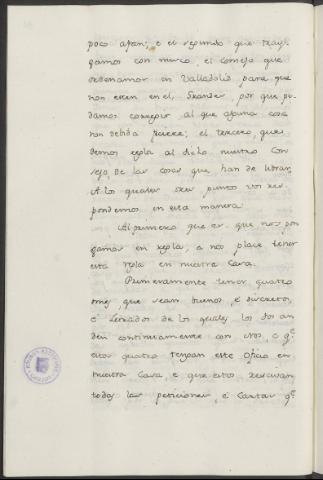 poco afan; e el segundo que tray-
gamos con nusco, el consejo que
ordenamos en Valladolid, para que
non esten en el, Grandes, por que po-
damos corregir al que alguna cosa
non debida ficiere; el tercero, que
demos regla al dicho nuestro Con-
sejo, de las cosas que han de librar,
A los quales tres puntos vos res-
pondemos en esta manera
Al primero que es, que nos pon-
gamos en regla, a nos place tener
esta regla en nuestra Casa.
Primeramente tener quatro
omes, que sean buenos, e discretos,
e Letrados de los quales los dos an-
den continuamente con Nos, e q.e
estos quatro tengan este Oficio en
nuestra Casa, e que estos resciban
todas las peticiones, e Cartas q.e